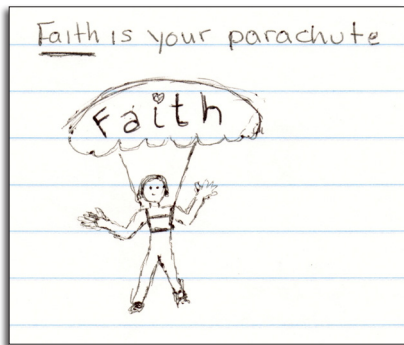 Faith is your parachute
Faith